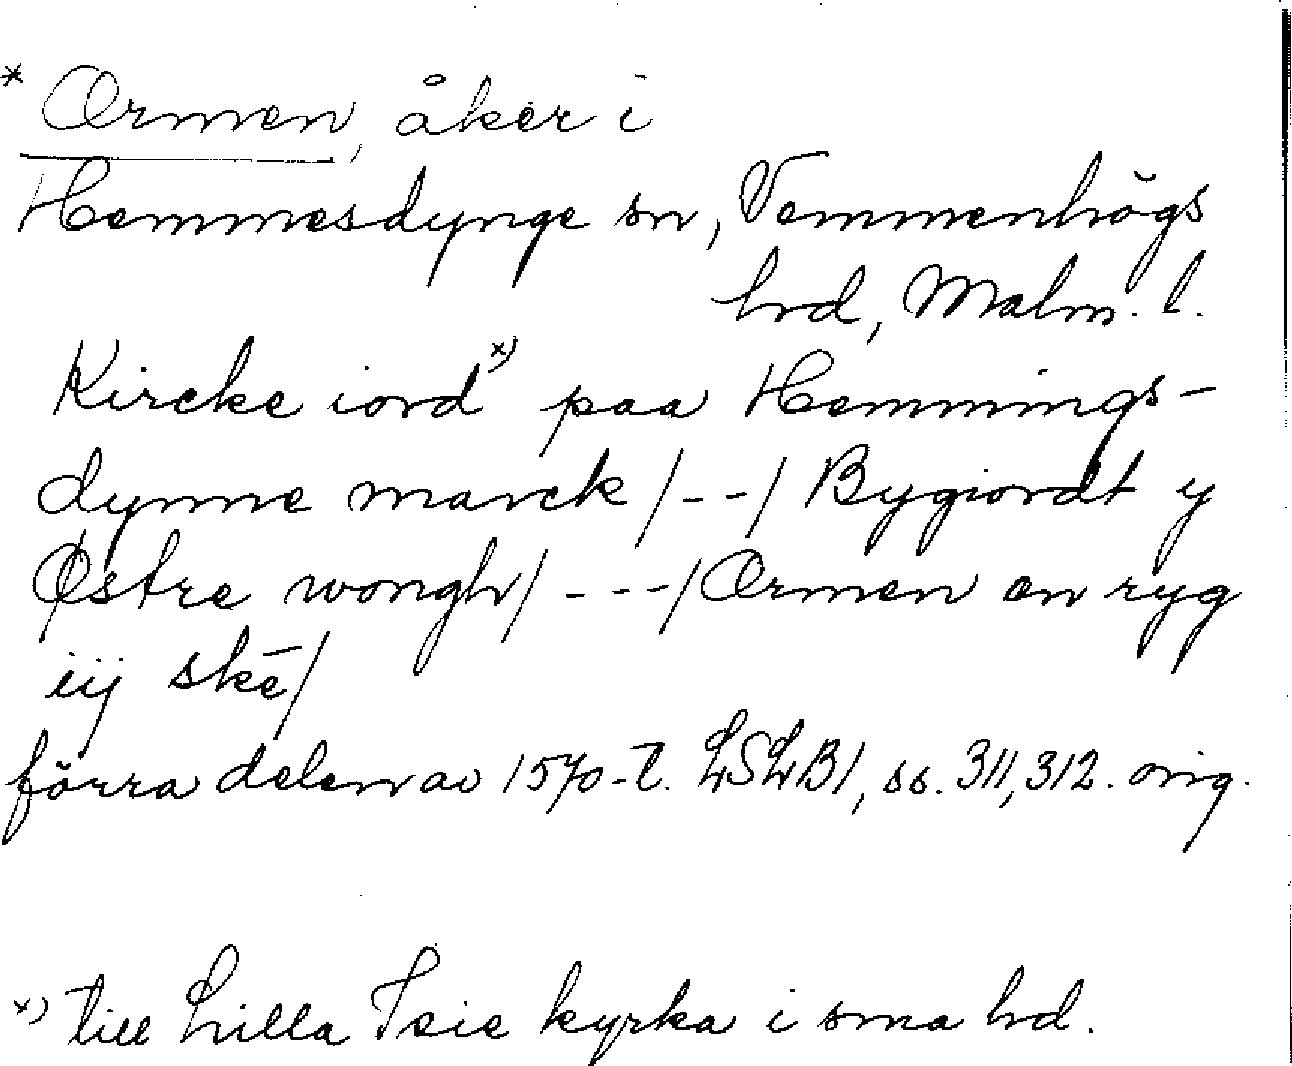 * Ormen, åker i
Hemmesdynge sn, Vemmenhögs
hd, Malm. l.
Kircke iord x) paa Hemmings-
dynne marck /--/ Bygiordt y
Østre wongh/ ---/ Ormen en ryg
iij skē/
förra delen av 1570-t. LSLB1, ss. 311, 312. orig.
x) till Lilla Isie kyrka i sma hd.